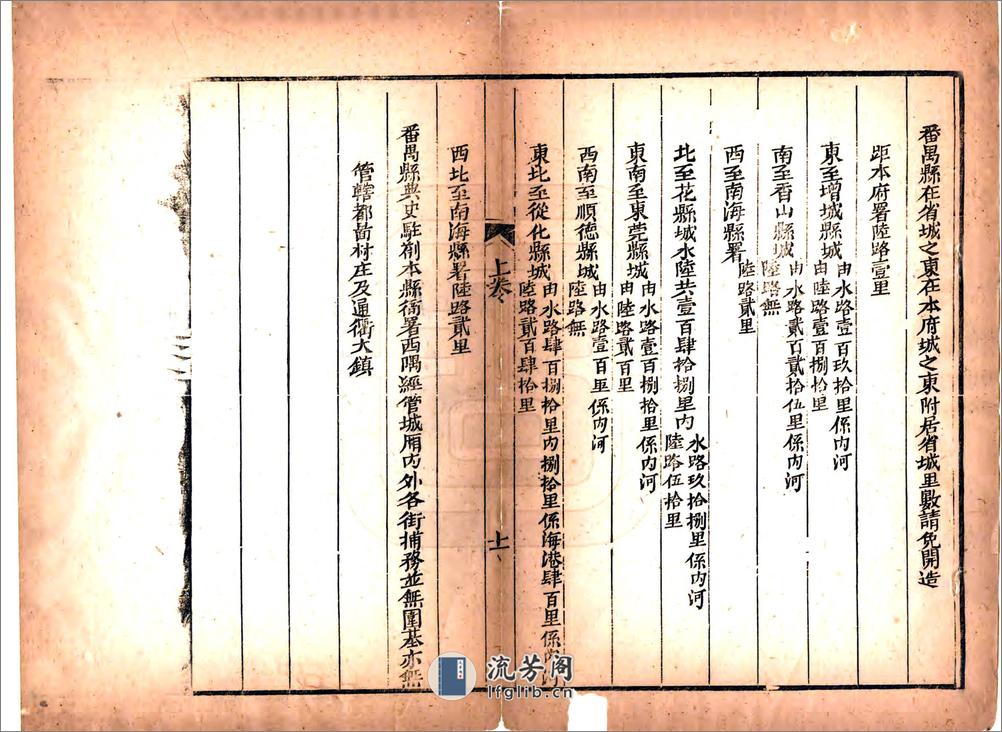 番禺縣在省城之東在本府城之東附居省城里數請免開造
距本府署陸路壹里
東至增城縣城
由水路壹百玖拾里係內河
由陸路壹百捌拾里
南至香山縣城
由水路貳百貳拾伍里係內河
陸路無
西至南海縣署
陸路貳里
北至花縣城水陸共壹百肆拾捌里內
水路玖拾捌里係內河
陸路伍拾里
東南至東莞縣城
由水路壹百捌拾里係內河
由陸路貳百里
西南至順德縣城
由水路壹百里係內河
陸路無
東北至從化縣城
由水路肆百捌拾里內捌拾里係海港肆百里係內河
陸路貳百肆拾里
上卷
上
西北至南海縣署陸路貳里
番禺縣典史駐劄本縣衙署西隅經管城厢內外各街捕務並無圍基亦無
管轄都啚村庄及通衢大鎮
流芳阁
lfglib.cn